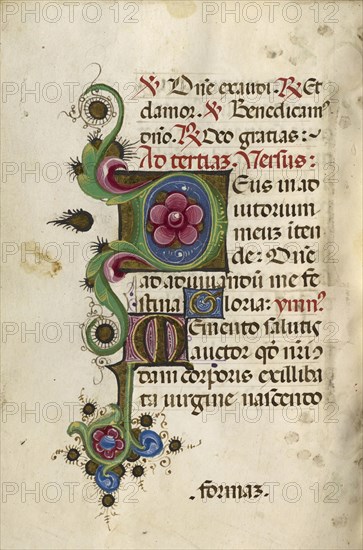 ℣ Dñe exaudi. ℟ Et
clamor. ℣ Benedicam⁹
dño. ℟ Deo gratias:~
Ad tertiaz. Versus:
Deus in ad
iutorium
meuz inten
de: Dñe
ad adiuuandũ me fe
stina Gloria: ymn⁹
Memento salutis
auctor qđ nr̃i
dam corporis ex illiba
ta uirgine nascendo
formaz.
PHOTO12